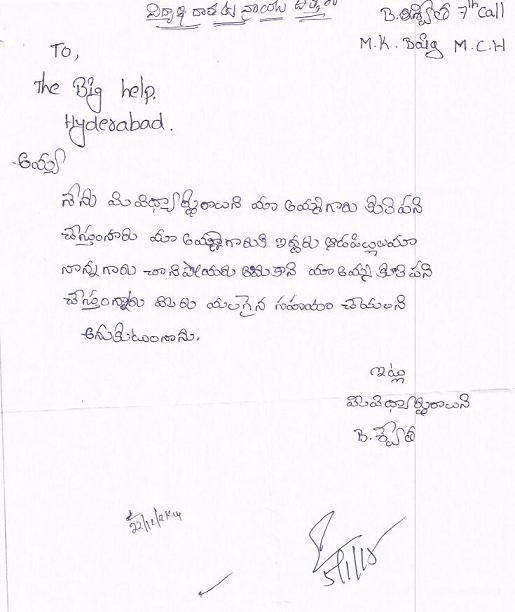 విద్యార్థి దాతకు వ్రాయు ఉత్తరం
B. శ్వేత 7th Call
M.K. Baig M.C.H
To,
The Big help.
Hyderabad.
అయ్య
నేను మీ విద్యార్థురాలని మా అమ్మగారు కులి పని
చేస్తుంనారు మా అమ్మగారుకి ఇద్దరు ఆడపిల్లలమా
నాన్నగారు చానిపోయరు అమితాని మా అమ్మ కులి పని
చేస్తుంన్నారు మీరు యలగైన సహయం చేయలని
అనుకుటుంనాను.
ఇట్లు
మీ విద్యార్థురాలని
B. శ్వేత
22/12/2014
5/1/15